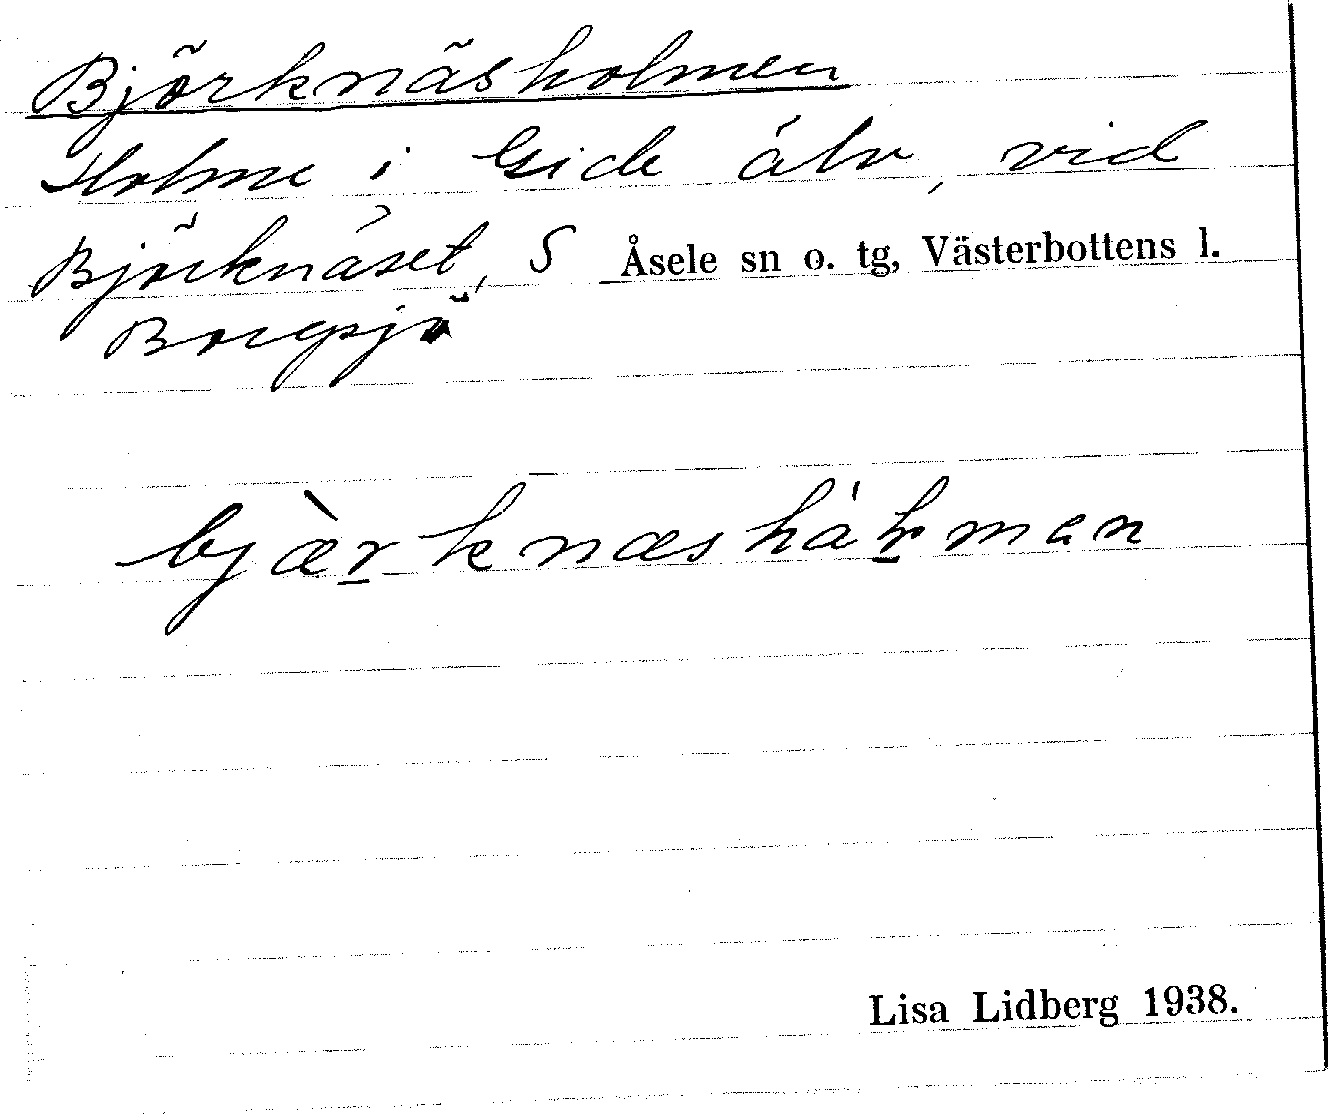 Björknäsholmen
Holme i Gide älv, vid
Björknäset, S Åsele sn o. tg, Västerbottens l.
Borgsjö
bjæ̀r̲knæshåḻman
Lisa Lidberg 1938.